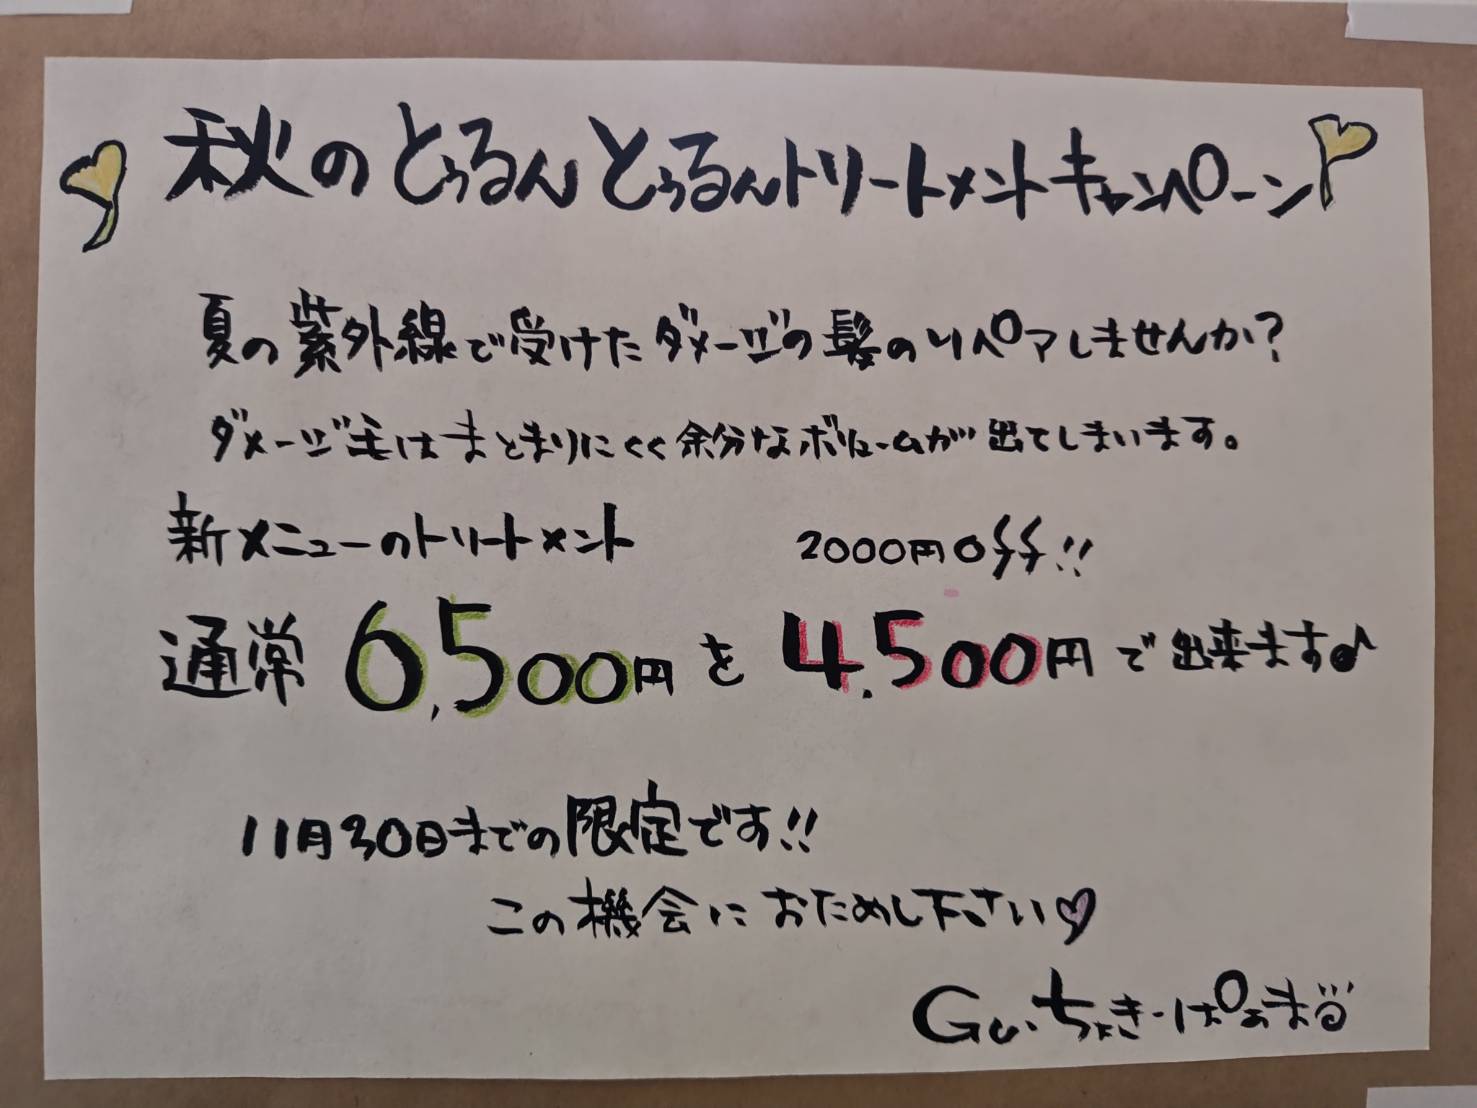 秋のとぅるんとぅるんトリートメントキャンペーン
夏の紫外線で受けたダメージの髪のリペアしませんか?
ダメージ毛はまとまりにくく余分なボリュームが出てしまいます。
新メニューのトリートメント 2000円OFF!!
通常6,500円を4,500円で出来ます♪
11月30日までの限定です!!
この機会におためし下さい♡
Gu.ちょき.ぱぁまる